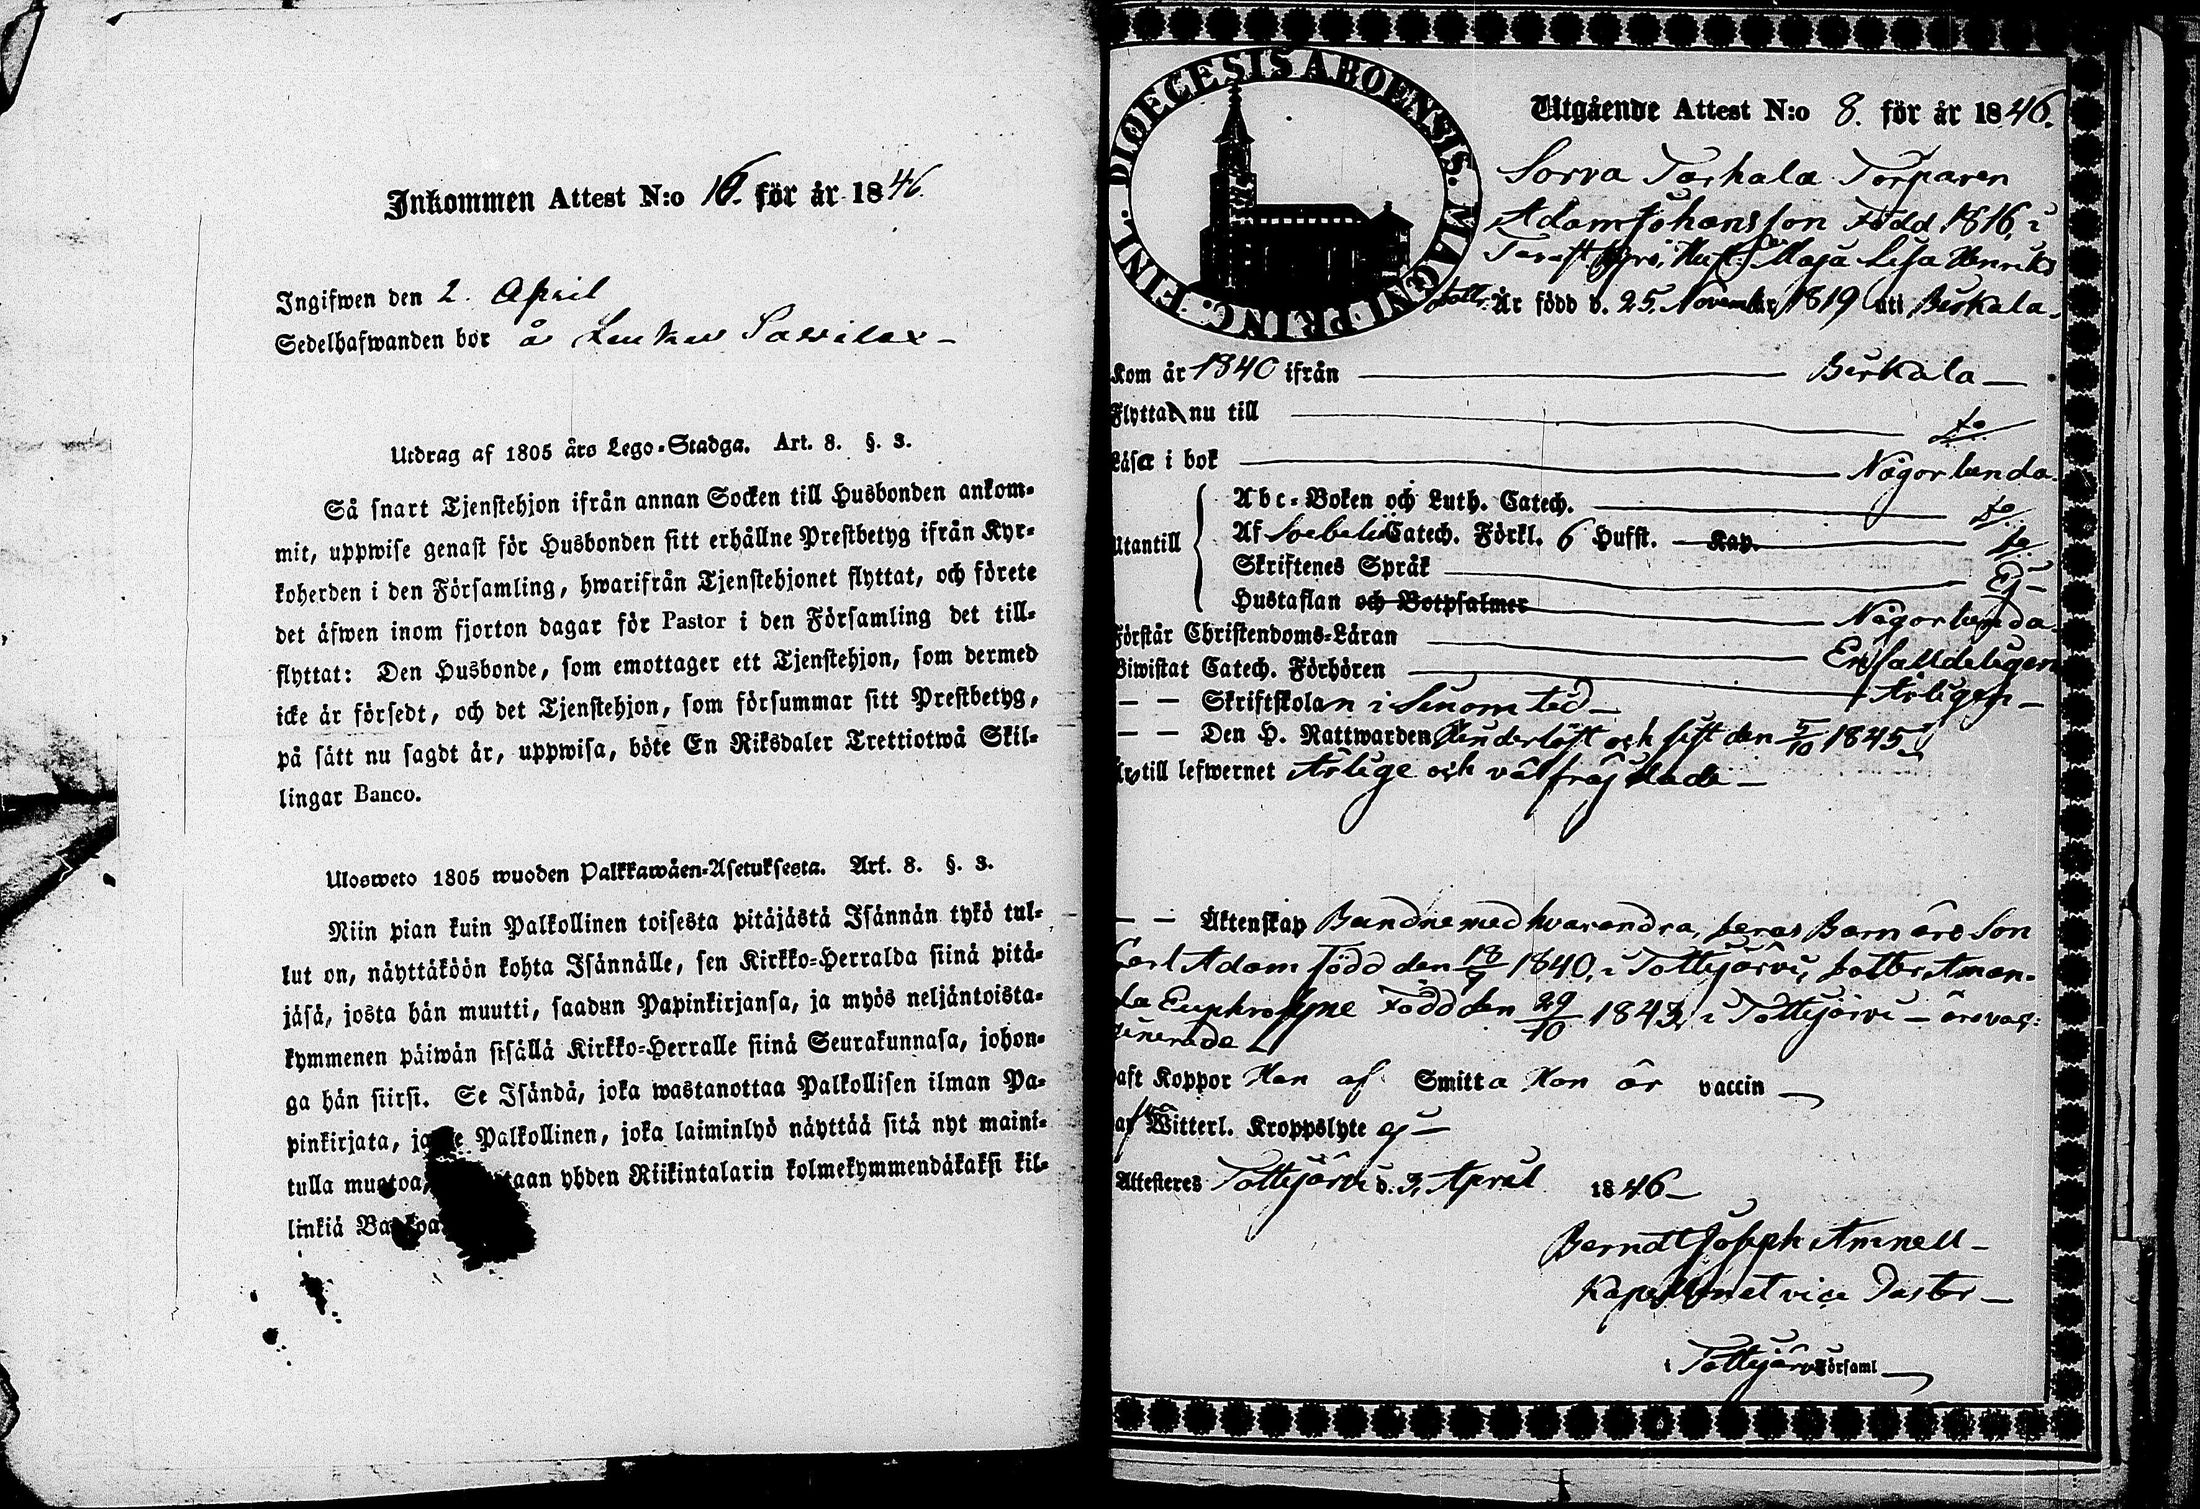 Inkommen Attest N:o 16. för år 1846.
Ingifwen den 2. April
Sedelhafwanden bor å
Utdrag af 1805 års Lego-Stadga. Art. 8. §. 3.
Så snart Tjenstehjon ifrån annan Socken till Husbonden ankom-
mit, uppwise genast för Husbonden sitt erhållne Prestbetyg ifrån Kyr-
koherden i den Församling, hwarifrån Tjenstehjonet flyttat, och förete
det äfwen inom fjorton dagar för Pastor i den Församling det till-
flyttat: Den Husbonde, som emottager ett Tjenstehjon, som dermed
icke är försedt, och det Tjenstehjon, som försummar sitt Prestbetyg,
på sätt nu sagdt är, uppwisa, böte En Riksdaler Trettiotwå Skil-
lingar Banco.
Ulosweto 1805 wuoden Palkkawäen-Asetuksesta. Art. 8. §. 3.
Niin pian kuin Palkollinen toisesta pitäjästä Isännän tykö tul-
lut on, näyttäköön kohta Isännälle, sen Kirkko-Herralda siinä pitä-
jäsä, josta hän muutti, saadun Papinkirjansa, ja myös neljäntoista-
kymmenen päiwän sisällä Kirkko-Herralle siinä Seurakunnasa, johon-
ga hän siirsi. Se Isändä, joka wastanottaa Palkollisen ilman Pa-
pinkirjata, Palkollinen, joka laiminlyö näyttää sitä nyt maini-
tulla muotoa, yhden Riikintalarin kolmekymmendäkaksi kil-
linkiä
DIOECESIS ABOENSIS. MAGNI PRINC. FINL.
Utgående Attest N:o 8. för år 1846.
Sorva Tarkala Torparen
Adam Johansson Född 1816, i
Maja Lisa Henriks
dottr. Är född d. 25. November 1819 uti Birkala.
Kom år 1840 ifrån Birkala
Flyttar nu till do
Läser i bok Någorlunda
Utantill
Abc-Boken och Luth. Catech. do
Af Svebelii Catech. Förkl. 6 Hufst. Kap. do
Skriftenes Språk Ej
Hustaflan och Botpsalmer Någorlunda
Förstår Christendoms-Läran Enfalldeligen
Biwistat Catech. Förhören Årligen
— — Skriftskolan i Sinom tid
— — Den H. Nattwarden och sist den 5/10 1845
till lefwernet Ärlige och välfräjdade
— — Äktenskap Bundne med hvarandra, deras Barn äro Son
Carl Adam född den 18/9 1840, i Tottijärvi, dotter Aman-
da Euphrosyne Född den 29/10 1843, i Tottijärvi — äro vac-
cinerade
haft Koppor Han af Smitta Hon är vaccin
Witterl. Kroppslyte ej
Attesteres Tottijärvi d. 3. April 1846
Berndt Joseph Amnell
Kapellan et vice Pastor
i Tottijärvi Församl